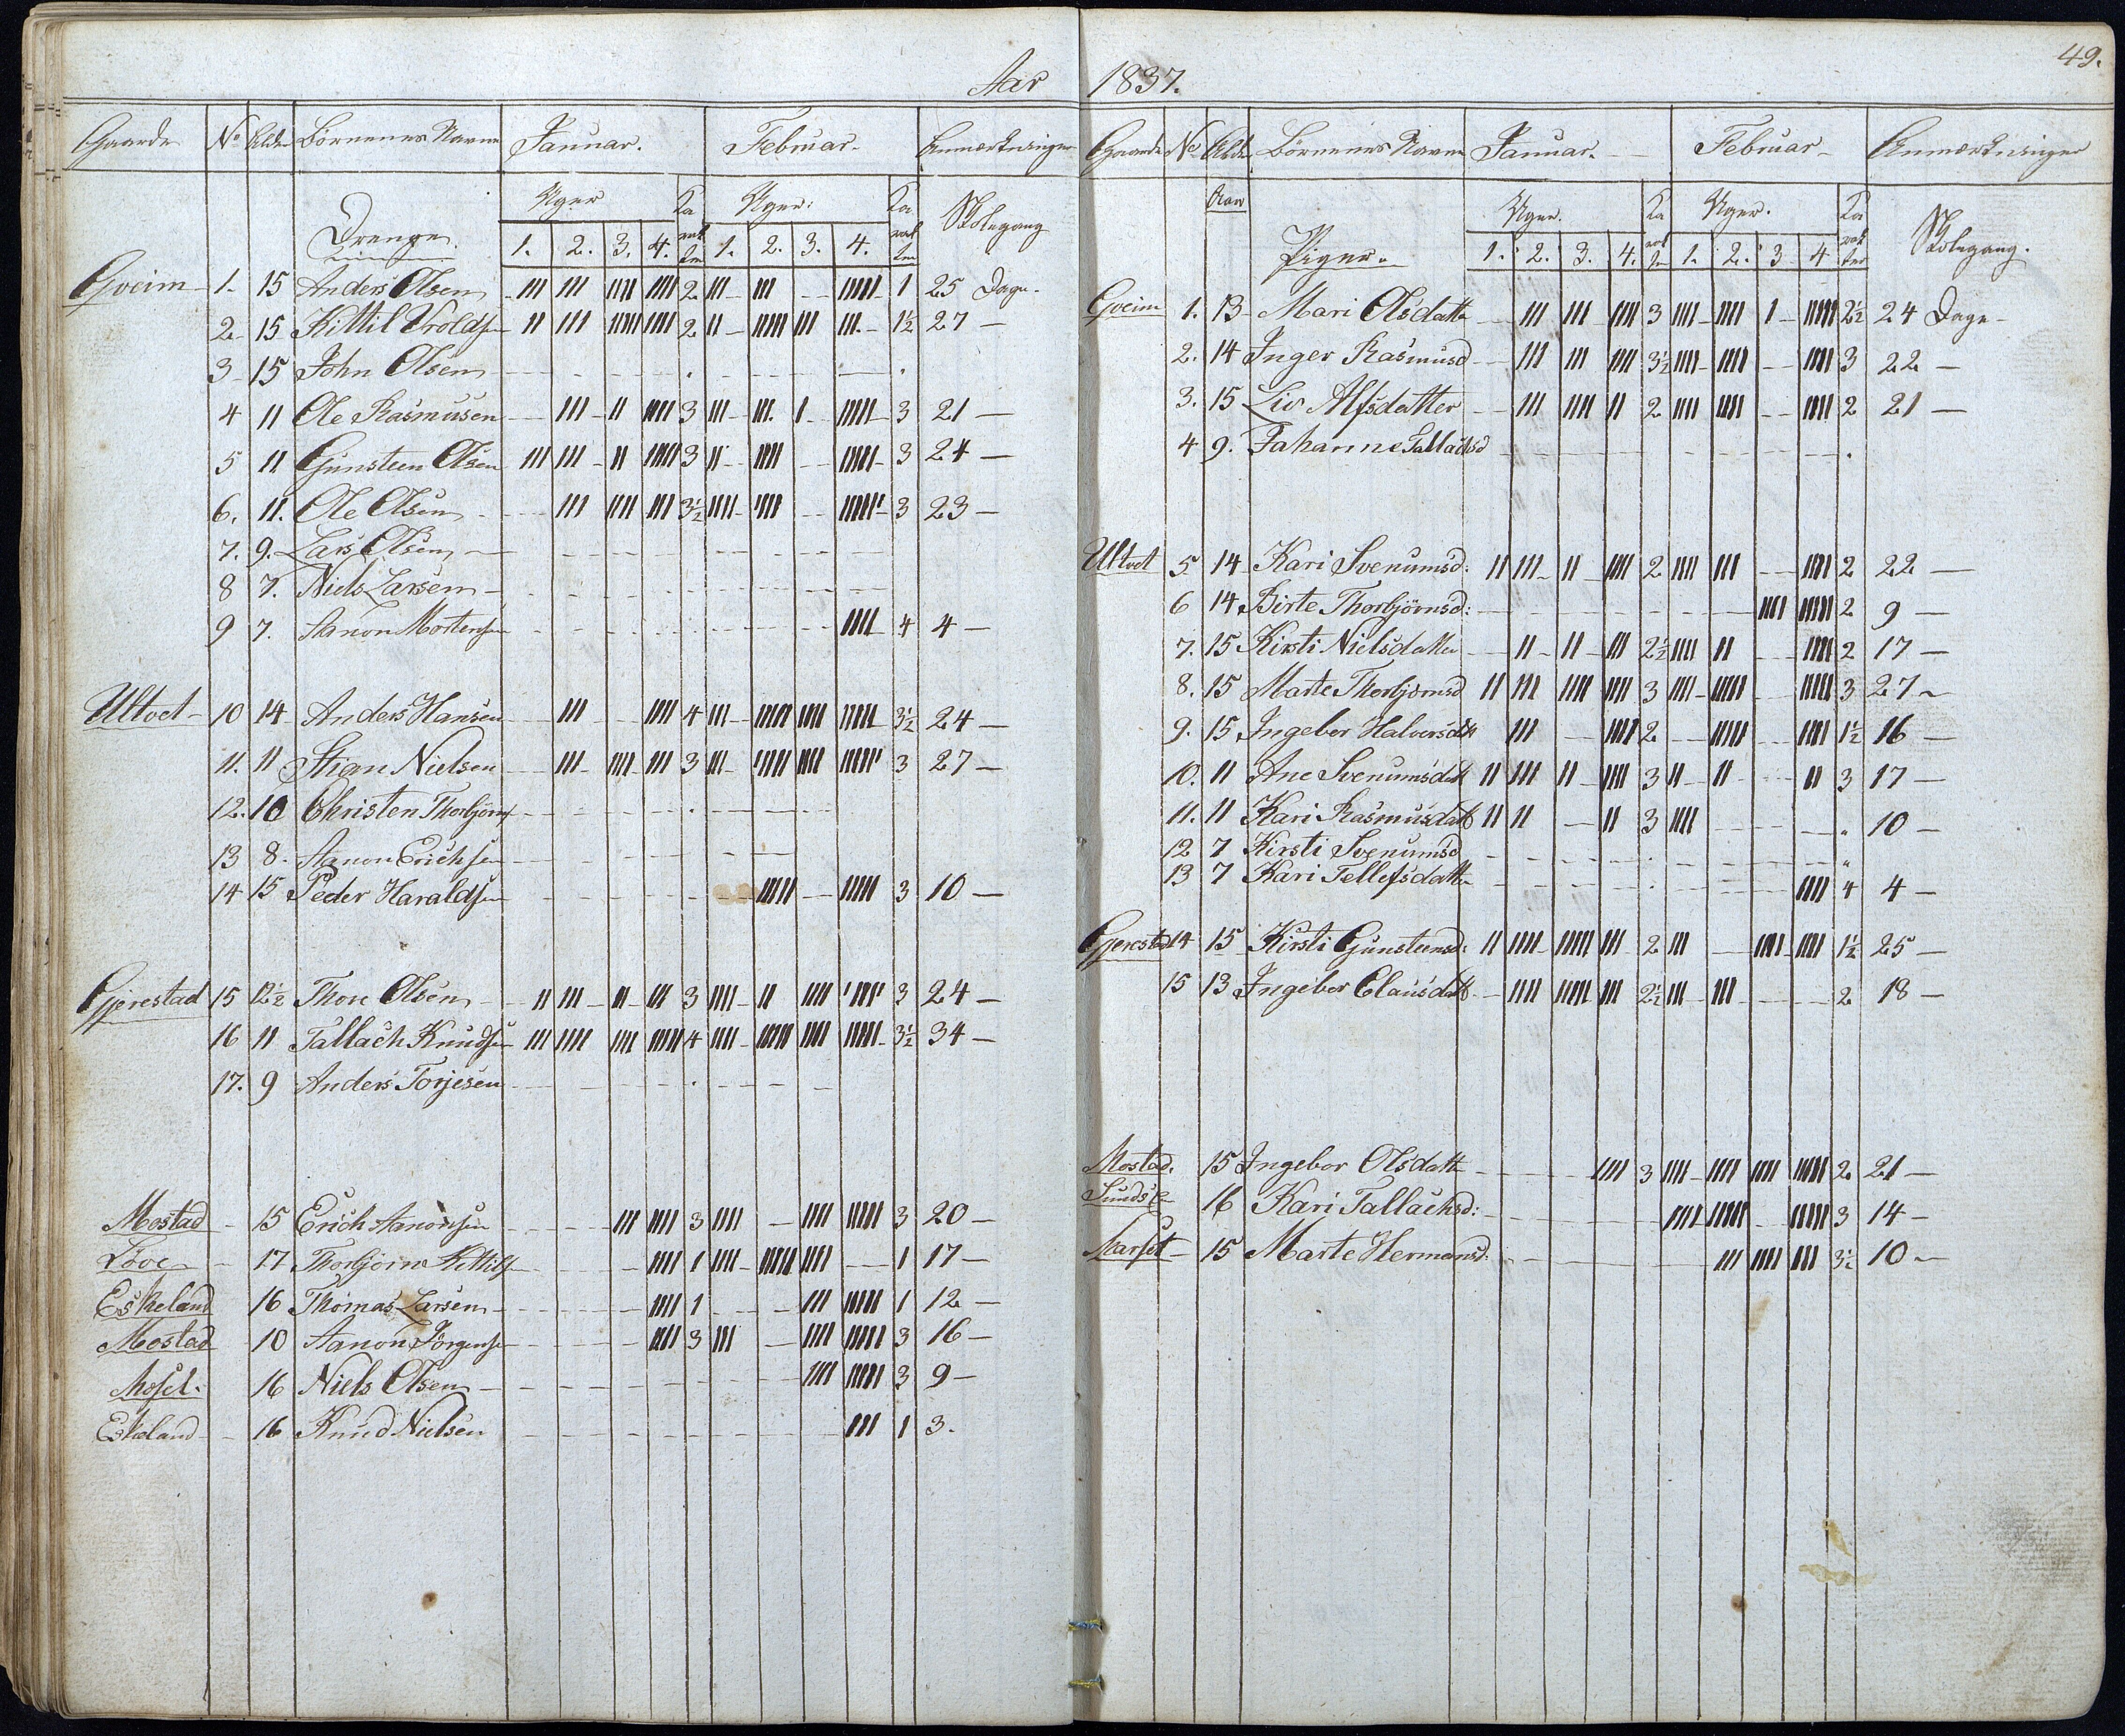 Aar 1837.
49.
Gaarde No Alder Börnenes Navne Januar. Februar. Anmærkninger
Uger Ka Uger: Ka Skolegang
Drenge. 1. 2. 3. 4. rak ter 1. 2. 3. 4. rak ter
Gveim 1. 15 Anders Olsen III III IIII IIII 2 III III IIIII 1 25 Dage.
2 15 Kittil Vroldsen II III IIIII IIII 2 II IIIII III III 1½ 27 —
3 15 John Olsen
4 11 Ole Rasmusen III II IIII 3 III III. I IIIII 3 21 —
5 11 Gunsteen Olsen III III II IIIII 3 II IIII IIIII 3 24 —
6. 11. Ole Olsen III IIII III 3½ IIII IIII IIIIII 3 23 —
7. 9. Lars Olsen
8 7. Niels Larsen
9 7. Aanon Mortensen IIII 4 4 —
Ultvet 10 14 Anders Hansen III IIII 4 III IIIII IIII IIIII 3½ 24 —
11. 11 Stian Nielsen III IIII III 3 III IIIII IIII IIIIII 3 27 —
12. 10 Christen Thorbjorns
13 8. Aanon Erichsen
14 15 Peder Haraldsen IIIII IIIII 3 10 —
Gjerestad 15 12½ Thore Olsen II III II III 3 IIII II IIII IIIII 3 24 —
16 11 Tallach Knudsen III IIII IIII IIIII 4 IIII IIIII IIII IIIII 3½ 34 —
17. 9 Anders Torjesen
Mostad 15 Erich Aanonsen III IIII 3 IIII IIII IIIII 3 20 —
Löve 17 Thorbjörn Kittils IIII 1 IIII IIIII IIII 1 17 —
Eskeland 16 Thomas Larsen IIII 1 III IIIII 1 12 —
Mostad 10 Aanon Jörgensen IIII 3 III IIII IIIII 3 16 —
16 Niels Olsen IIII IIIII 3 9 —
Eskeland 16 Knud Nielsen III 1 3.
Gaarde No Alder Börnenes Navne Januar. Februar Anmærkninger
Aar Uger. Ka Uger. Ka
Piger. 1. 2. 3. 4. rak ter 1. 2. 3 4 rak ter Skolegang.
Gveim 1. 13 Mari Olsdatter III III IIII 3 IIII IIII I IIIII 2½ 24 Dage
2. 14 Inger Rasmusd III III IIII 3½ IIII IIII IIII 3 22 —
3. 15 Liv Alfsdatter III IIII II 2 IIII IIII IIII 2 21 —
4 9. Johanne Tallachsd
Ultvet 5 14 Kari Svenumsd: II III II IIII 2 IIII III IIII 2 22 —
6 14 Birte Thorbjörnsd: IIII IIIII 2 9 —
7. 15 Kirsti Nielsdatter II II III 2½ IIII II IIII 2 17 —
8. 15 Marte Thorbjornsd II III IIII IIII 3 IIII IIIII IIIII 3 27
9. 15 Ingebor Halvorsdtt III IIII 2 IIII IIII 1½ 16 —
10. 11 Ane Svenumsdatt II III II IIII 3 II II II 3 17 —
11. 11 Kari Rasmusdatt II II II 3 IIII 10 —
12 7 Kirsti Svenumsd
13 7 Kari Tellefsdatter IIII 4 4 —
Gjerestad 14 15 Kirsti Gunsteensd: II IIII IIIII III 2 III IIII IIII 1½ 25 —
15 13 Ingebor Clausdatt IIII IIIII III 2½ III III 2 18 —
Mostad. 15 Ingebor Olsdatter IIII 3 IIII IIII IIII IIIII 2 21 —
16 Kari Tallachsd: IIII IIIII IIIII 3 14 —
15 Marte Hermansd: III IIII III 3½ 10 —